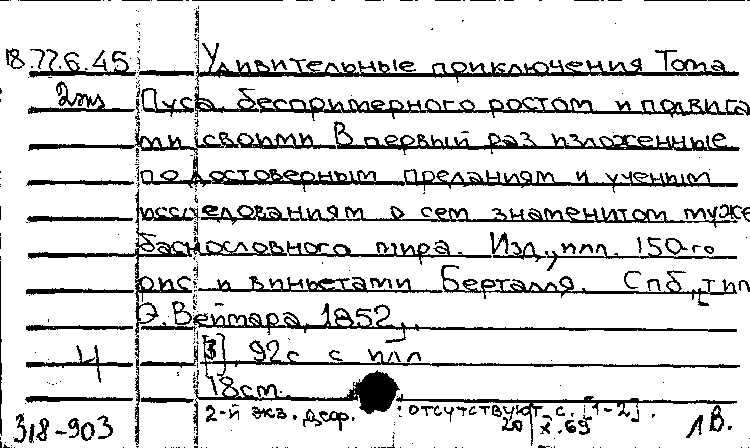 18.77.6.45 Удивительные приключения Тома
2 экз Пуса, беспримерного ростом и подвига
ми своими В первый раз изложенные
по достоверным преданиям и ученым
исследованиям о сем знаменитом муже
баснословного мира. Изд., илл. 150-го
рис и виньетами Берталля. Спб., тип
Э. Веймара, 1852,.
4 [3] 92с с илл
18см.
2-й экз. деф. : отсутствуют с. [1-2].
318-903 20/X.69 ЛВ.